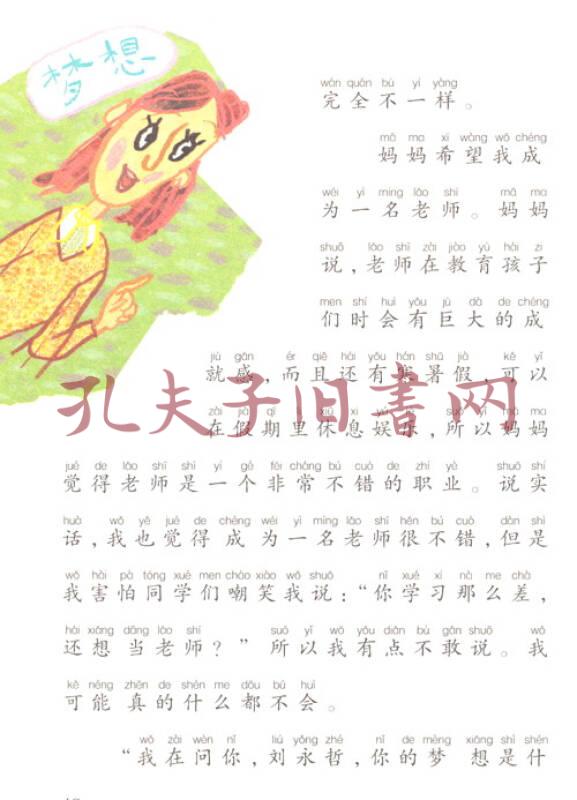 梦想
wán quán bù yí yàng
完全不一样。
mā ma xī wàng wǒ chéng
妈妈希望我成
wéi yì míng lǎo shī mā ma
为一名老师。妈妈
shuō lǎo shī zài jiào yù hái zi
说,老师在教育孩子
men shí huì yǒu jù dà de chéng
们时会有巨大的成
jiù gǎn ér qiě hái yǒu hán shǔ jià kě yǐ
就感,而且还有寒暑假,可以
孔夫子旧书网
zài jià qī lǐ xiū xi yú lè suǒ yǐ mā ma
在假期里休息娱乐,所以妈妈
jué de lǎo shī shì yí gè fēi cháng bú cuò de zhí yè shuō shí
觉得老师是一个非常不错的职业。说实
huà wǒ yě jué de chéng wéi yì míng lǎo shī hěn bú cuò dàn shì
话,我也觉得成为一名老师很不错,但是
wǒ hài pà tóng xué men cháo xiào wǒ shuō nǐ xué xí nà me chà
我害怕同学们嘲笑我说:“你学习那么差,
hái xiǎng dāng lǎo shī suǒ yǐ wǒ yǒu diǎn bù gǎn shuō wǒ
还想当老师?”所以我有点不敢说。我
kě néng zhēn de shén me dōu bú huì
可能真的什么都不会。
wǒ zài wèn nǐ liú yǒng zhé nǐ de mèng xiǎng shì shén
“我在问你,刘永哲,你的梦想是什